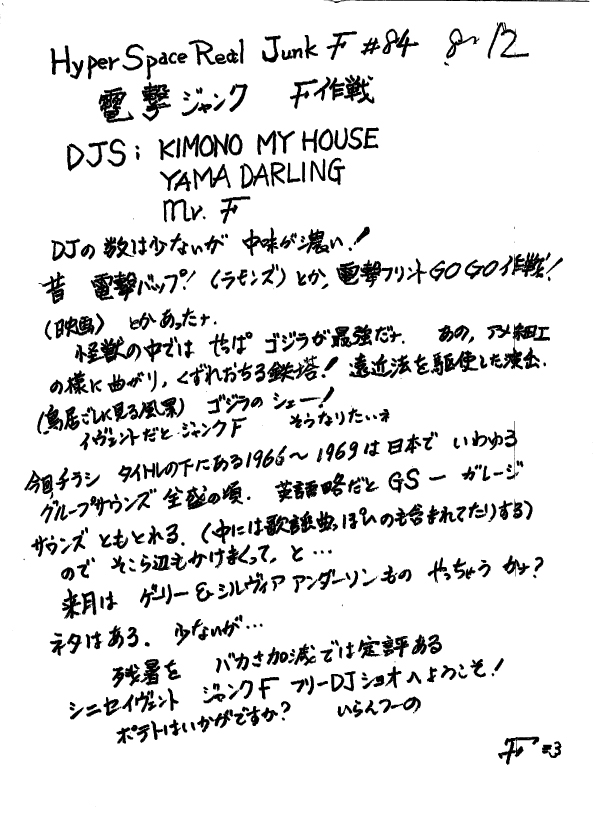 Hyper Space Real Junk F #84 8/12
電撃ジャンク F作戦
DJS; KIMONO MY HOUSE
YAMA DARLING
Mr. F
DJの数は少ないが 中味が濃い!
昔 電撃バップ!(ラモンズ)とか、電撃フリントGOGO作戦!
(映画) とかあったナ.
怪獣の中では やっぱ ゴジラが最強だナ. あの, アメ細工
の様に曲がり, くずれおちる鉄塔! 遠近法を駆使した演出.
(鳥居ごしに見る風景) ゴジラのシェー!
イヴェントだとジャンクF そうなりたいネ
今回チラシ タイトルの下にある1966〜1969は日本で いわゆる
グループサウンズ全盛の頃. 英語略だと GS ー ガレージ
サウンズ ともとれる. (中には歌謡曲っぽいのも含まれてたりする)
ので そこら辺もかけまくって, と…
来月は ゲーリー&シルヴィア アンダーソンもの やっちゃう かナ?
ネタはある. 少ないが…
残暑を バカさ加減では定評ある
シニセイヴェント ジャンクF フリーDJショオへようこそ!
ポテトはいかがですか? いらんつーの
F #3